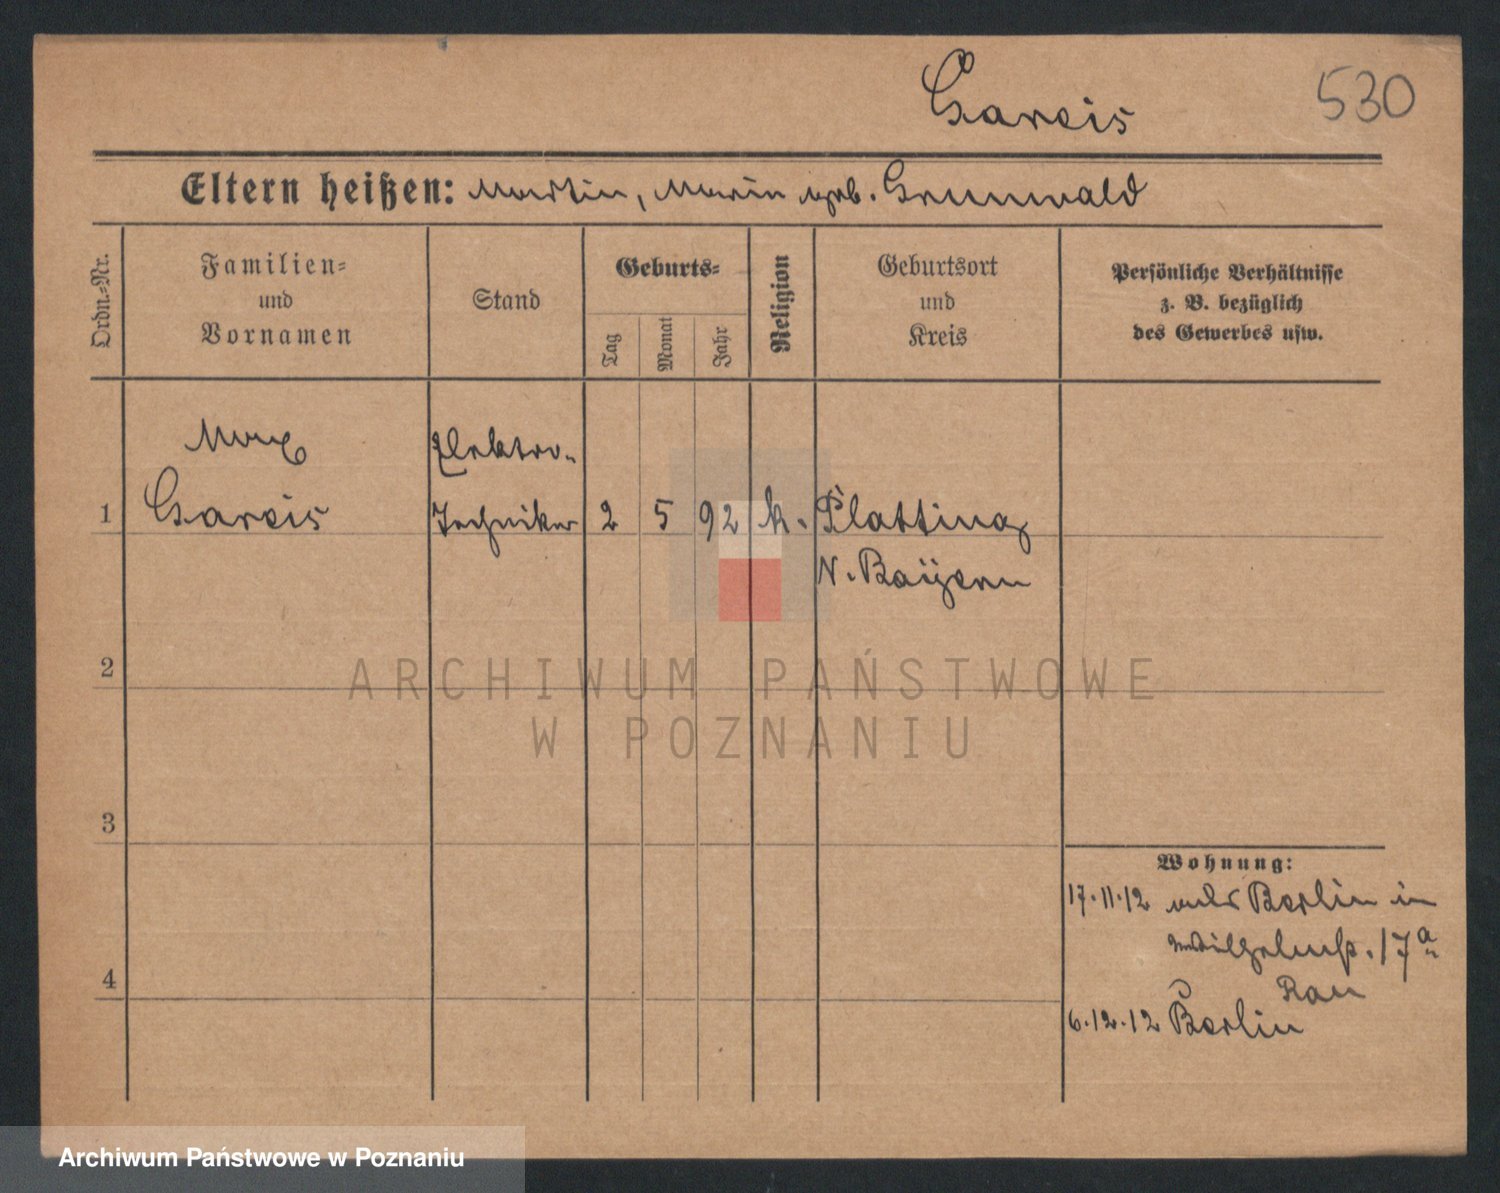 Gareis
530
Eltern heißen: Martin, Marie geb. Grunwald
Ordn.-Nr.
Familien-
und
Vornamen
Stand
Geburts-
Tag
Monat
Jahr
Religion
Geburtsort
und
Kreis
Persönliche Verhältnisse
z. B. bezüglich
des Gewerbes usw.
Max
Elektro-
1 Gareis Techniker 2 5 92 k. Plattling
N. Bayern
2
3
4
Wohnung:
17.11.12 aus Berlin in
Wilhelmstr. 17a
Rau
6.12.12 Berlin
ARCHIWUM PAŃSTWOWE
W POZNANIU
Archiwum Państwowe w Poznaniu